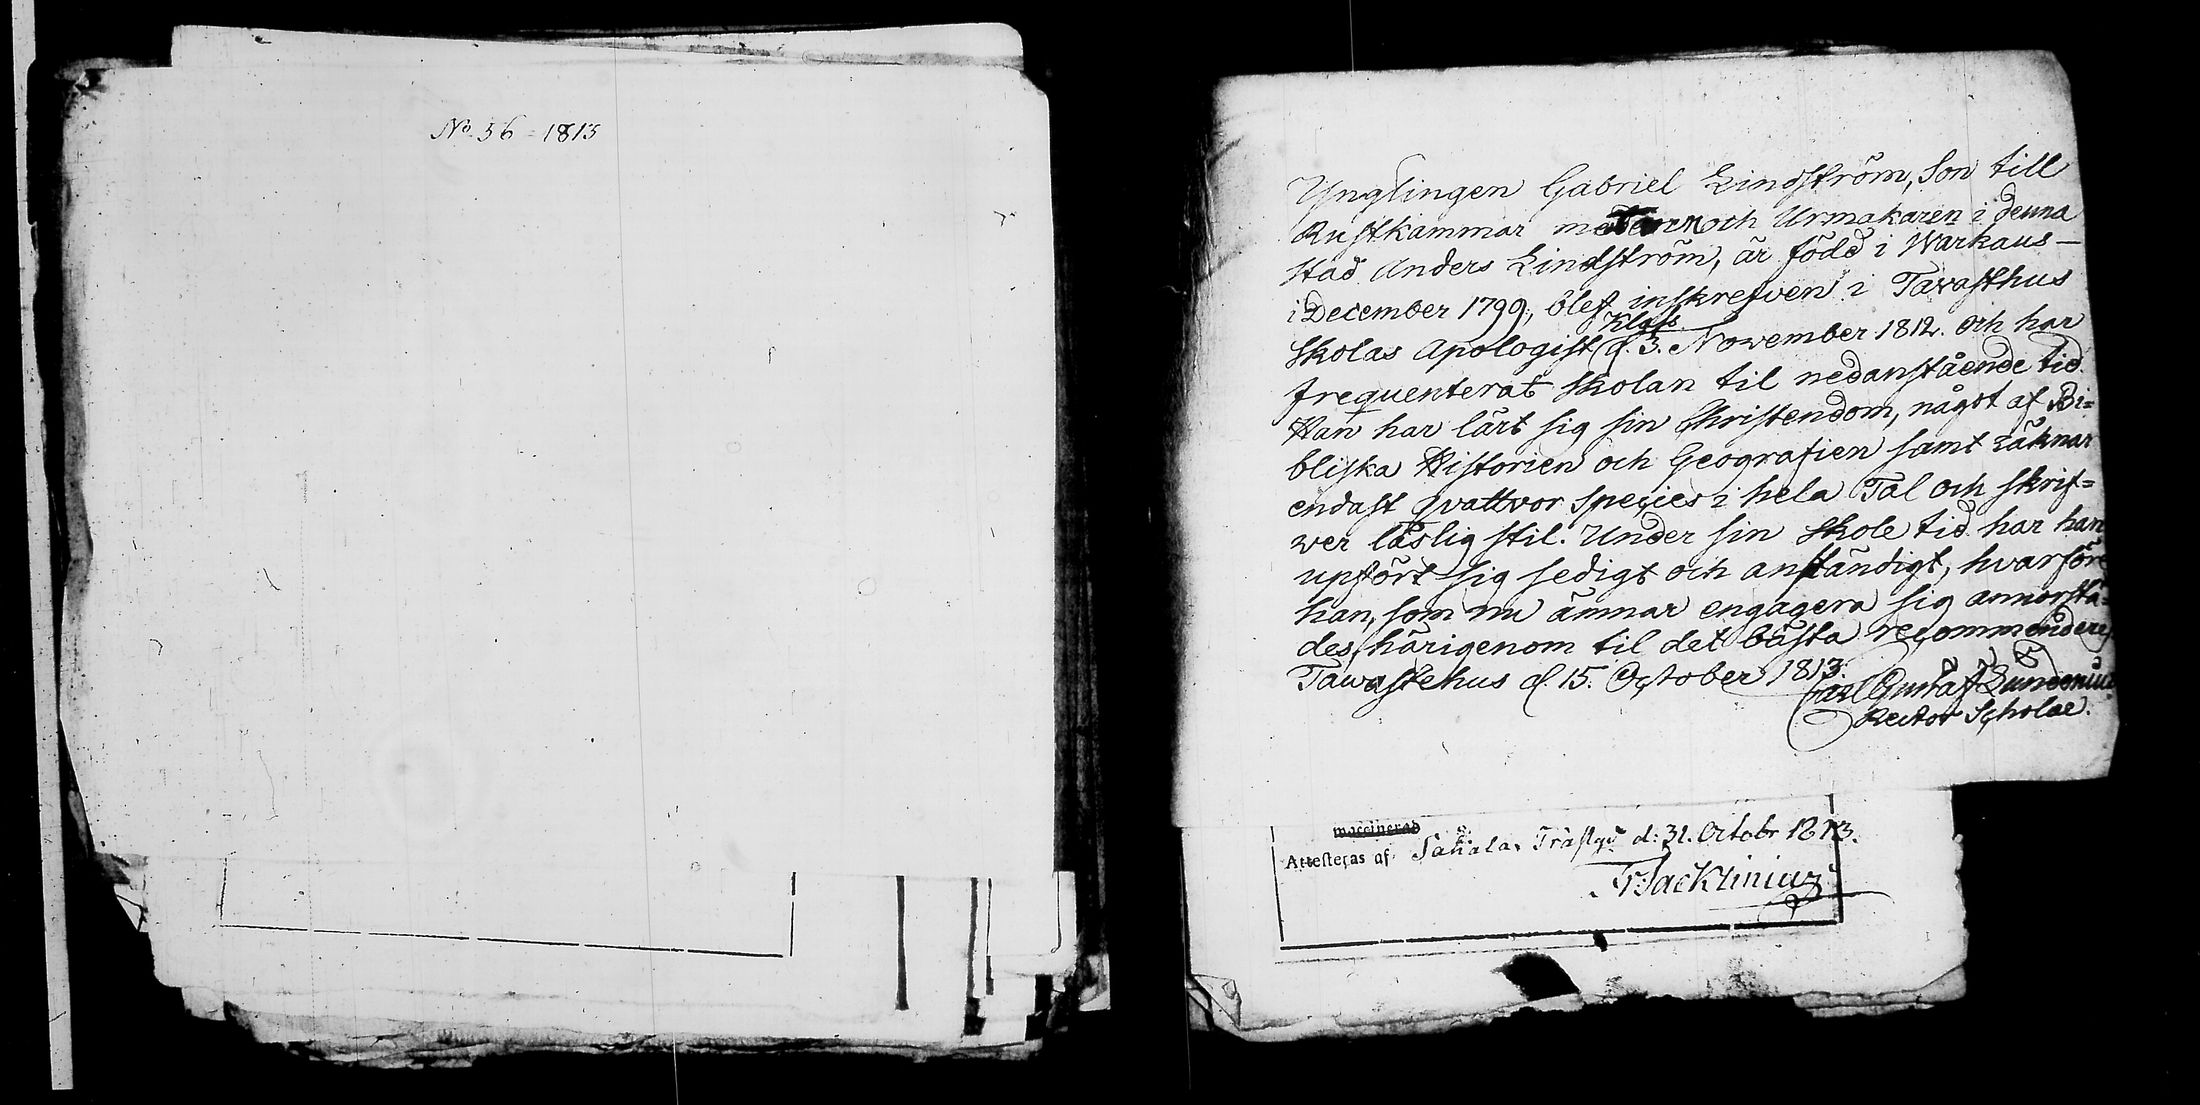 No 56 - 1813
Ynglingen Gabriel Lindström, Son till
Rustkammar och Urmakaren i denna
stad Anders Lindström, är född i Warkaus
i December 1799, blef inskrefven i Tavasthus
Skolas Apologist Klass d. 3. November 1812. Och har
frequenterat Skolan til nedanstående tid.
Han har lärt sig sin Christendom, något af Bi=
bliska Historien och Geografien samt räknar
endast qvattvor Species i hela Tal och skrif=
wer läslig stil. Under sin Skole tid har han
upfört sig sedigt och anständigt, hvarföre
han, som nu ämnar engagera sig annorstä=
des, härigenom til det bästa recommenderes.
Tawastehus d. 15. October 1813.
Carl Gustaf Lundenius
Rector Scholae.
vaccinerad
Attesteras af d: 31. Octobr 1813.